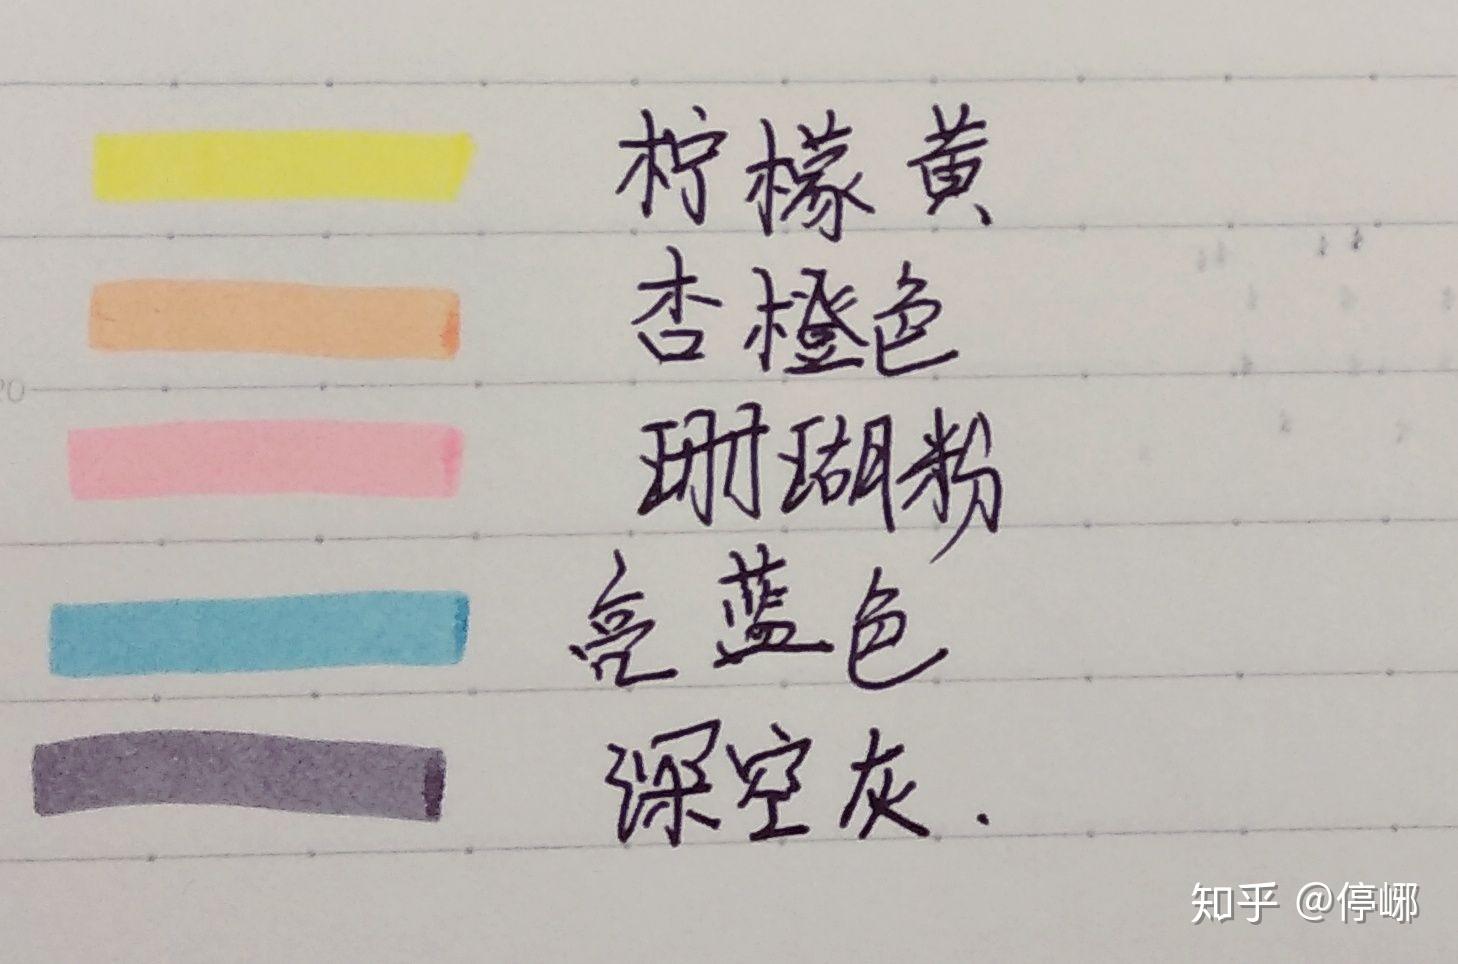 柠檬黄
杏橙色
20
珊瑚粉
亮蓝色
深空灰.
知乎 @停峫